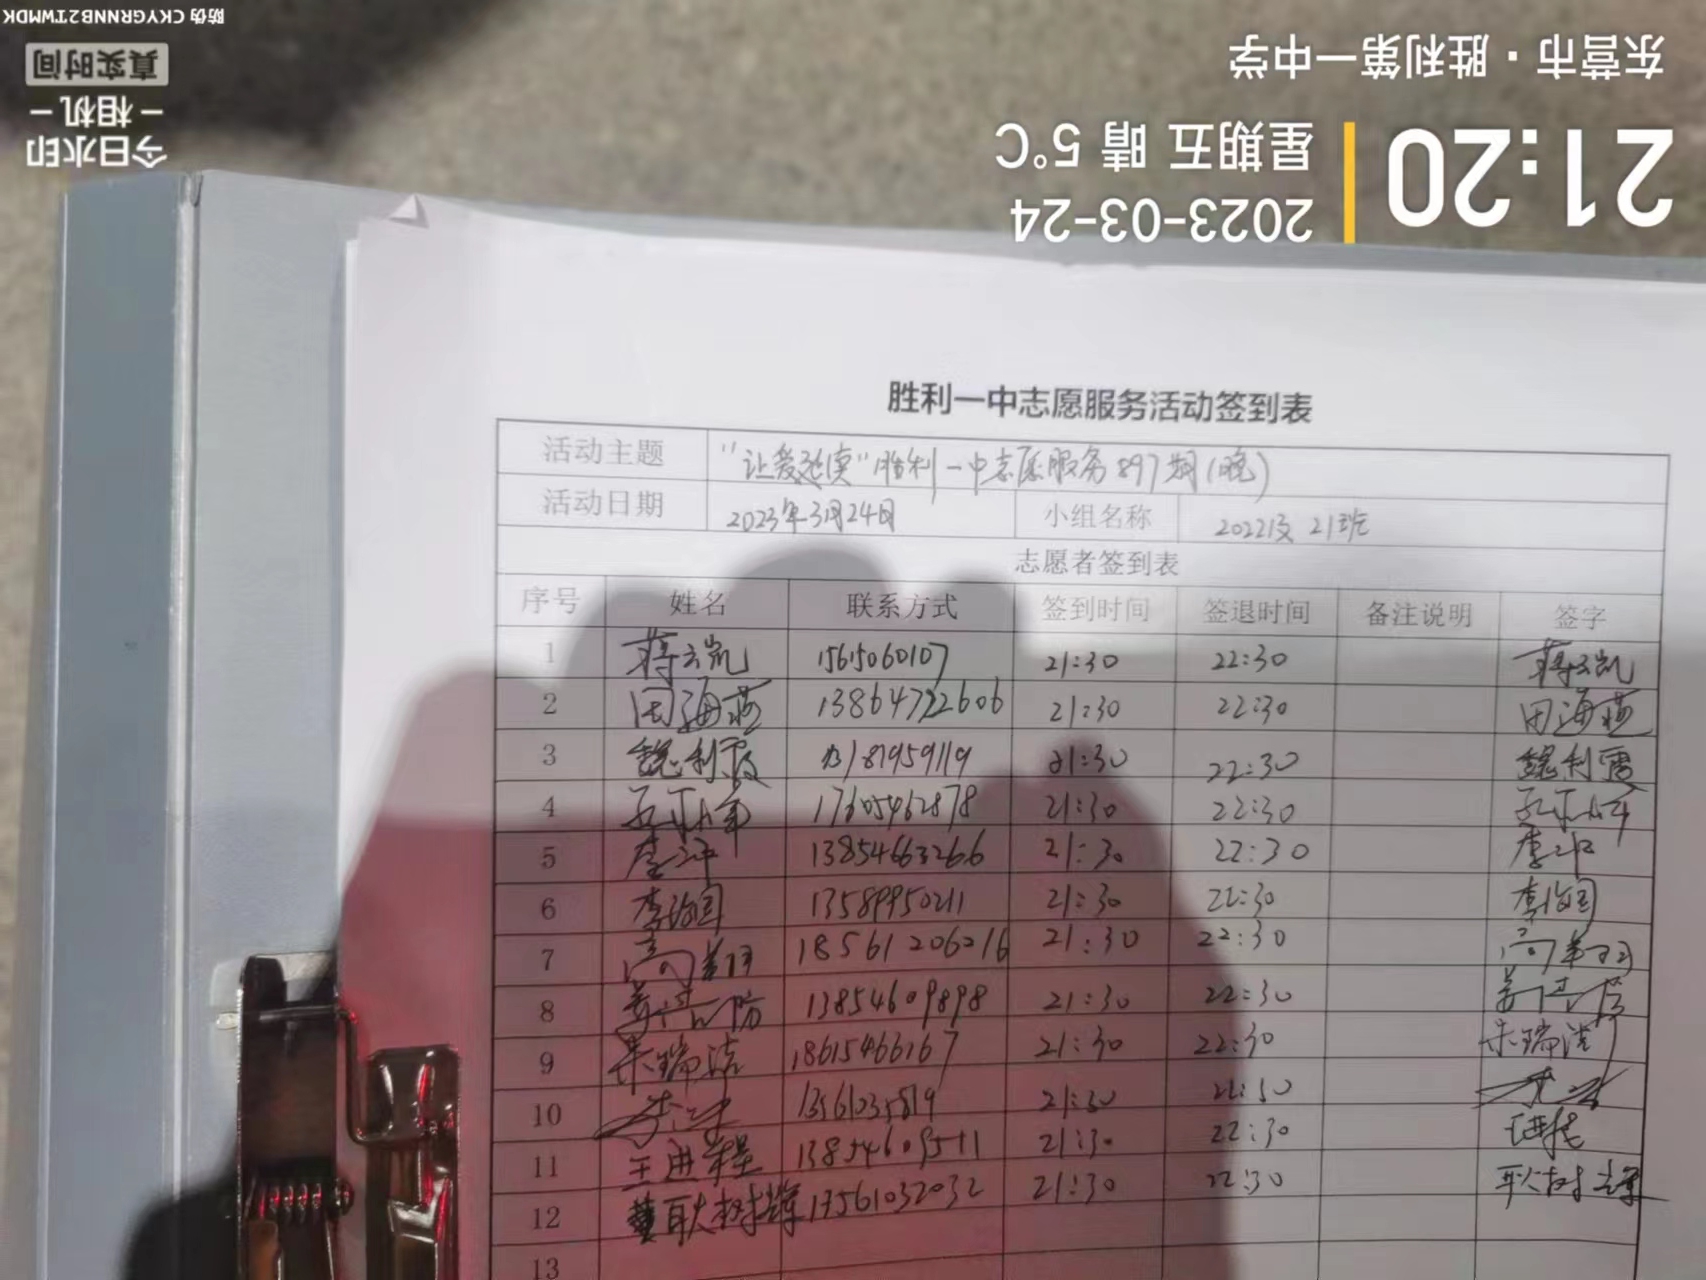 东营市·胜利第一中学
21:20
星期五 晴 5℃
2023-03-24
今日水印
-相机-
真实时间
防伪 CKYGRNNB2TWMDK
胜利一中志愿服务活动签到表
活动主题 "让爱延续"胜利一中志愿服务897期(晚)
活动日期 2023年3月24日 小组名称 2022级21班
志愿者签到表
序号 姓名 联系方式 签到时间 签退时间 备注说明 签字
1 蒋云凯 15615060107 21:30 22:30 蒋云凯
2 田海燕 13864722606 21:30 22:30 田海燕
3 魏利霞 21:30 22:30 魏利霞
4 17605462878 21:30 22:30
5 13854663266 21:30 22:30
6 李治国 13589950211 21:30 22:30 李治国
7 高翔 18561206216 21:30 22:30 高翔
8 13854609898 21:30 22:30
9 朱瑞洁 18615466167 21:30 22:30 朱瑞洁
10 13561035819 21:30 22:30
11 王进程 13854609511 21:30 22:30 王进程
12 耿树辉 13561032032 21:30 22:30 耿树辉
13